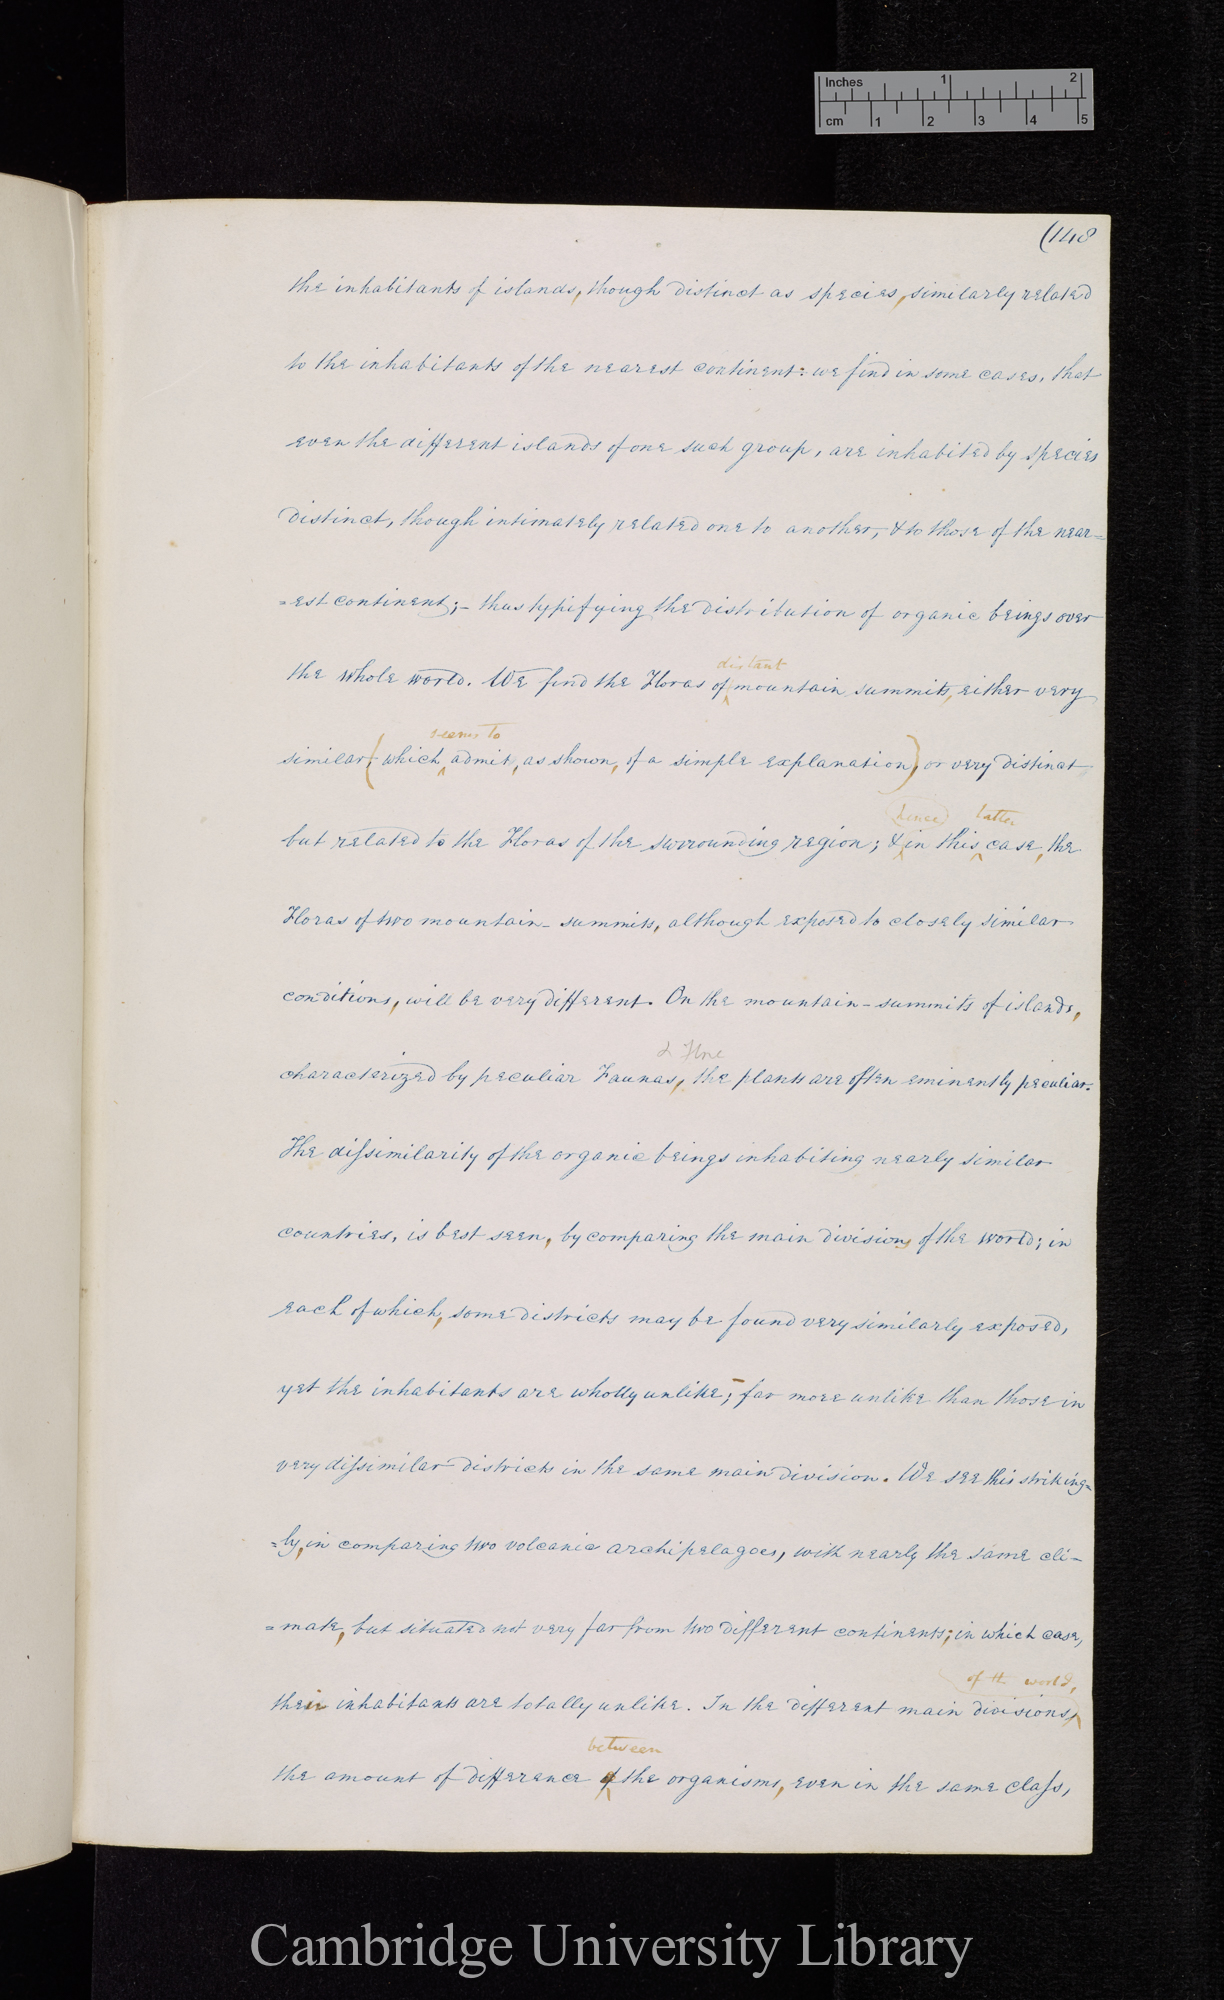 Inches 1 2
cm 1 2 3 4 5
(148
the inhabitants of islands, though distinct as species, similarly related
to the inhabitants of the nearest continent: we find in some cases, that
even the different islands of one such group, are inhabited by species
distinct, though intimately related one to another, & to those of the near=
=est continent;– thus typifying the distribution of organic beings over
distant
the whole world. We find the Floras of mountain summits, either very
seems to
similar, (which admit, as shown, of a simple explanation), or very distinct
(hence) latter
but related to the Floras of the surrounding region; & in this case, the
Floras of two mountain-summits, although exposed to closely similar
conditions, will be very different. On the mountain-summits of islands,
& Flore
characterized by peculiar Faunas, the plants are often eminently peculiar.
The dissimilarity of the organic beings inhabiting nearly similar
countries, is best seen, by comparing the main divisions of the world; in
each of which, some districts may be found very similarly exposed,
yet the inhabitants are wholly unlike;– far more unlike than those in
very dissimilar districts in the same main division. We see this striking=
=ly, in comparing two volcanic archipelagoes, with nearly the same cli-
=mate, but situated not very far from two different continents; in which case,
of th world,
their inhabitants are totally unlike. In the different main divisions,
between
the amount of difference of the organisms, even in the same class,
Cambridge University Library